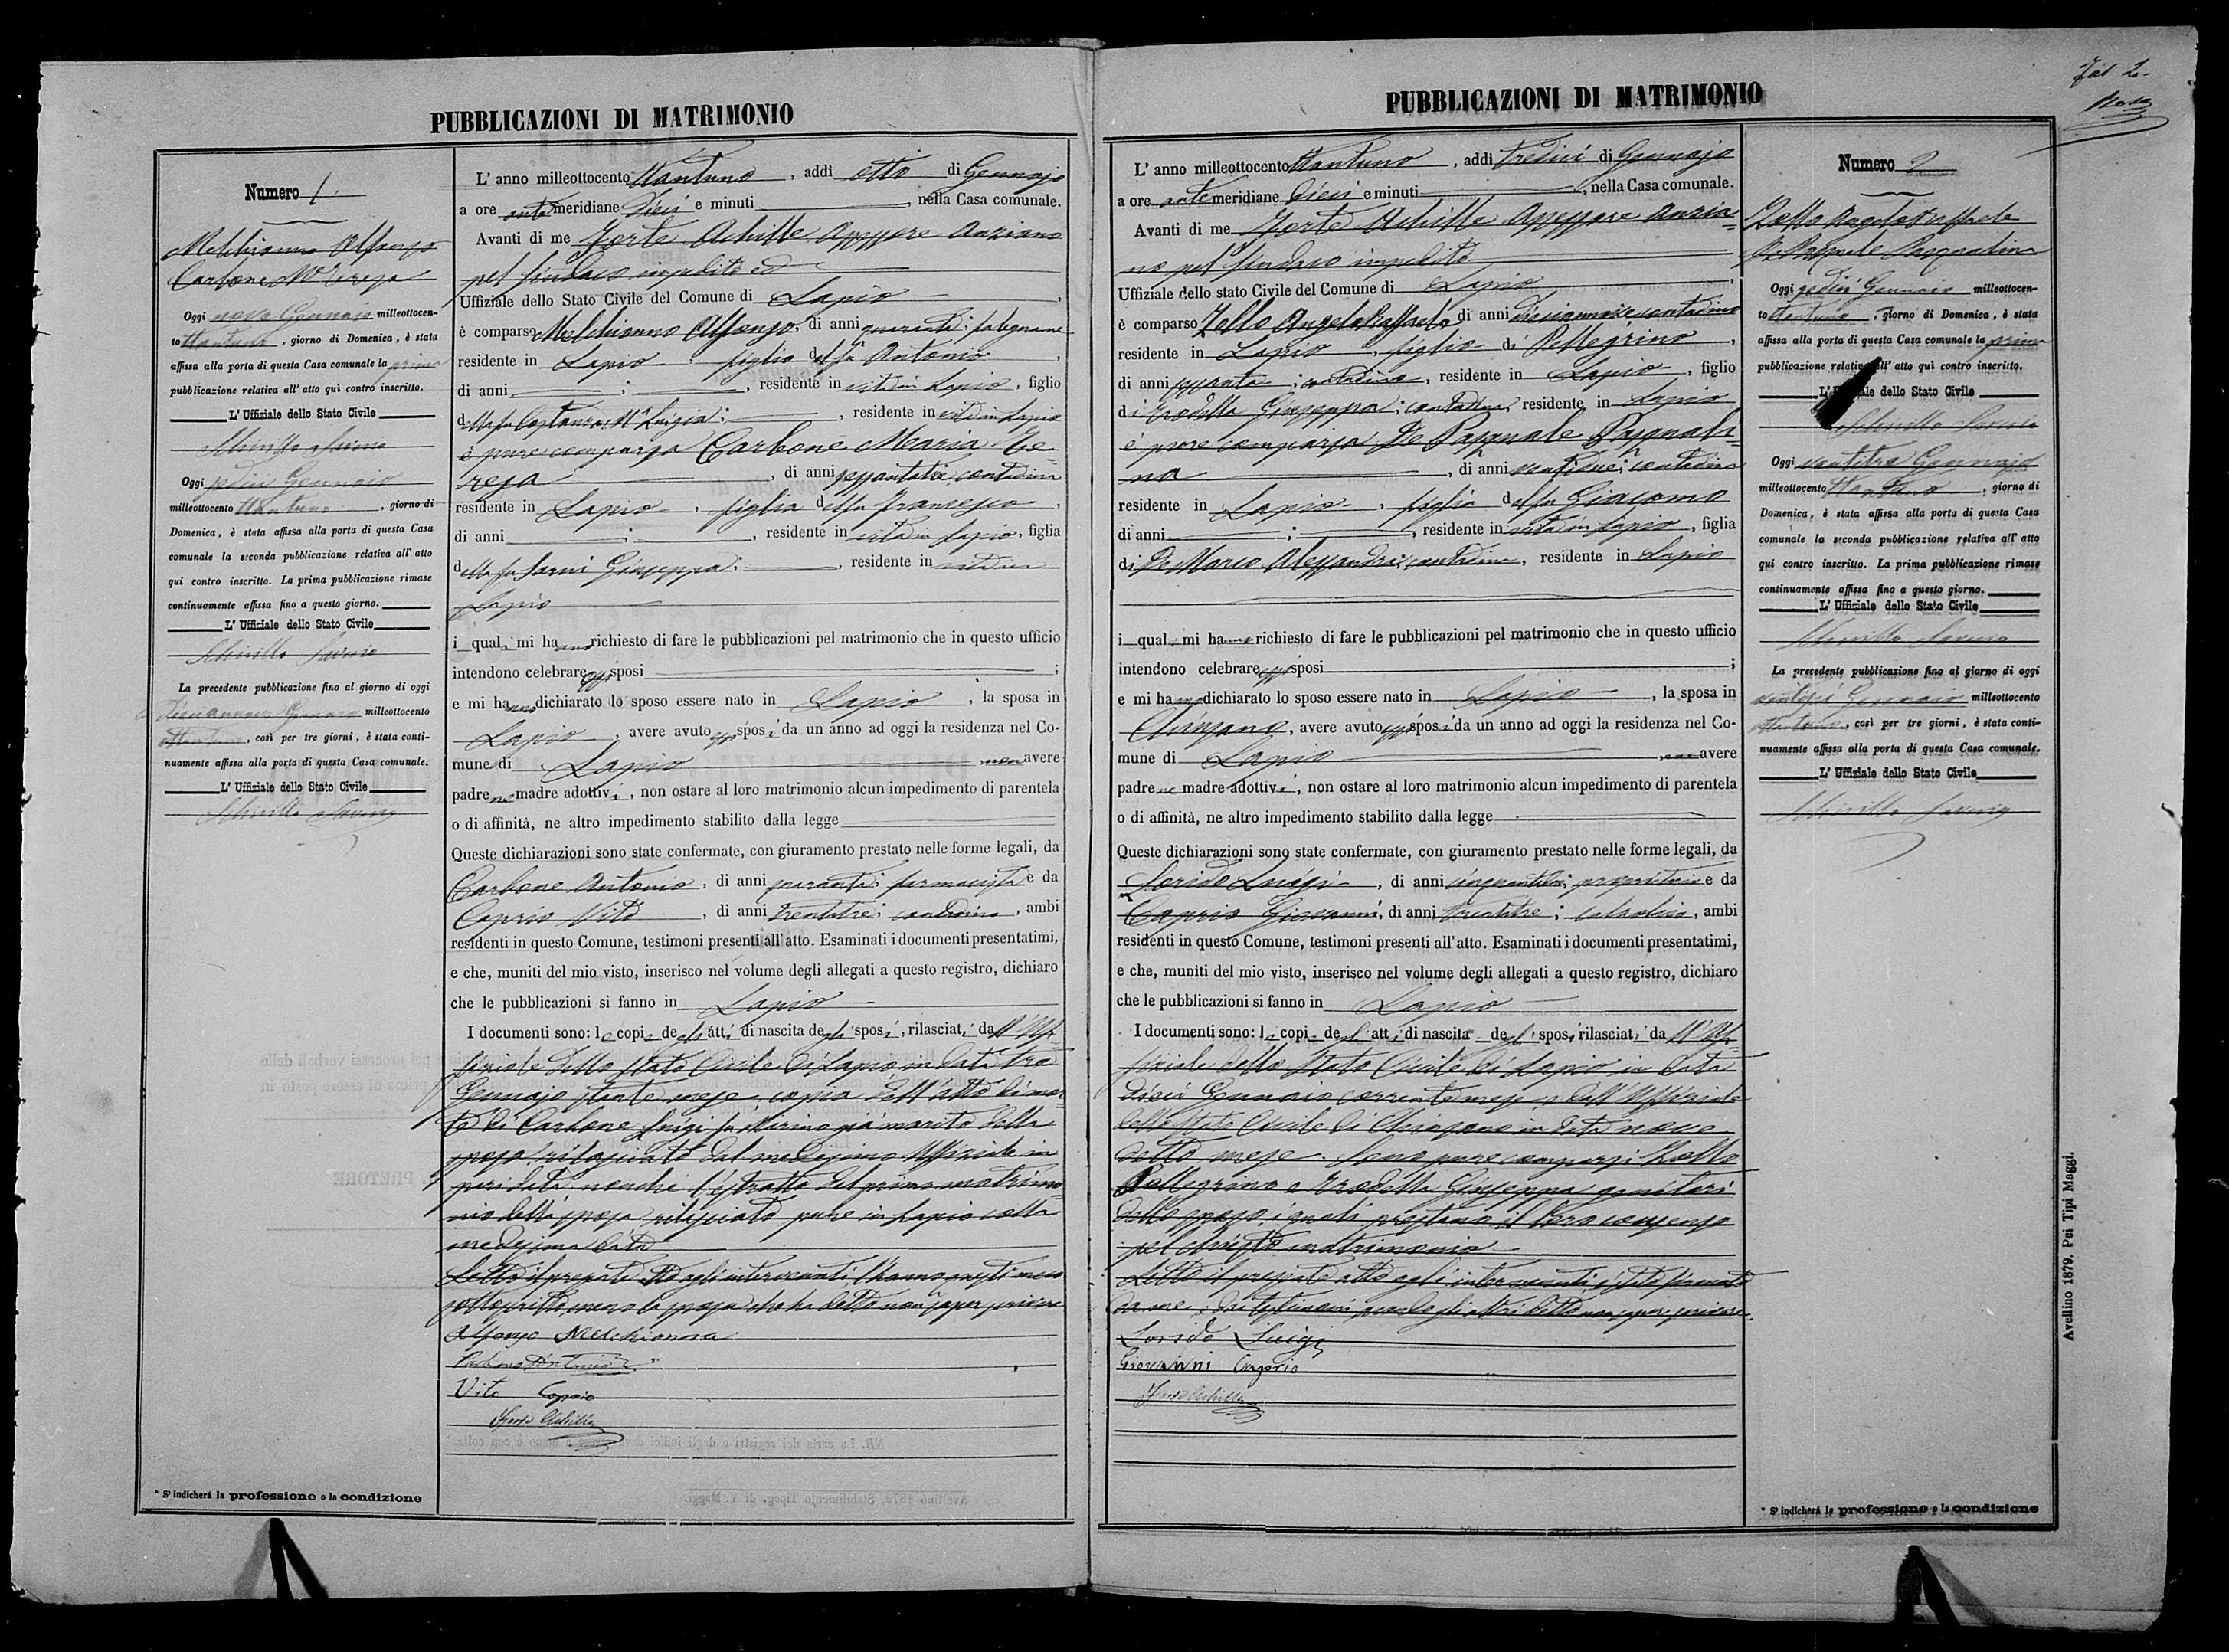 PUBBLICAZIONI DI MATRIMONIO
Numero 1
Melchionna Alfonzo
Carbone Ma Tereza
Oggi nove Gennaio milleottocen-
to ttantuno, giorno di Domenica, è stata
affissa alla porta di questa Casa comunale la prima
pubblicazione relativa all' atto quì contro inscritto.
L' Uffiziale dello Stato Civile
Oggi sedici Gennaio
milleottocento ttantuno, giorno di
Domenica, è stata affissa alla porta di questa Casa
comunale la seconda pubblicazione relativa all' atto
qui contro inscritto. La prima pubblicazione rimase
continuamente affissa fino a questo giorno.
L' Uffiziale dello Stato Civile
La precedente pubblicazione fino al giorno di oggi
diciannove Gennaio milleottocento
ttantuno, così per tre giorni, è stata conti-
nuamente affissa alla porta di questa Casa comunale.
L' Uffiziale dello Stato Civile
* Si indicherà la professione o la condizione
L' anno milleottocento ttantuno, addi otto di Gennajo
a ore antemeridiane dieci e minuti, nella Casa comunale.
Avanti di me Forte Achille Assessore Anziano
pel Sindaco impedito ed
Uffiziale dello Stato Civile del Comune di Lapio
è comparso Melchionna Alfonzo, di anni quaranta; falegname
residente in Lapio, figlio del fu Antonio
di anni ; , residente in vita in Lapio, figlio
della fu Costanza Ma Luigia; , residente in vita in Lapio
è pure comparsa Carbone Maria Te=
reza , di anni sessantatre; contadina
residente in Lapio, figlia del fu Francesco
di anni ; , residente in vita in Lapio, figlia
della fu Sarni Giuseppa; , residente in vita in
Lapio
i quali mi hanno richiesto di fare le pubblicazioni pel matrimonio che in questo ufficio
intendono celebrare essi sposi ;
e mi hanno dichiarato lo sposo essere nato in Lapio, la sposa in
Lapio, avere avuto essi sposi da un anno ad oggi la residenza nel Co-
mune di Lapio, non avere
padre ne madre adottivi, non ostare al loro matrimonio alcun impedimento di parentela
o di affinità, ne altro impedimento stabilito dalla legge
Queste dichiarazioni sono state confermate, con giuramento prestato nelle forme legali, da
Carbone Antonio, di anni quaranta; farmacista e da
Caprio Vito, di anni trentatre; contadino, ambi
residenti in questo Comune, testimoni presenti all' atto. Esaminati i documenti presentatimi,
e che, muniti del mio visto, inserisco nel volume degli allegati a questo registro, dichiaro
che le pubblicazioni si fanno in Lapio
I documenti sono: le copie degli atti di nascita degli sposi, rilasciati da ll' Uf=
fiziale dello Stato Civile di Lapio in data tre
Gennajo stante mese, copia dell' atto di mor=
te di Carbone Luigi fu Marino già marito della
sposa, rilasciato dal medesimo Uffiziale in
pari data nonchè l' estratto del primo matrimo=
nio della sposa rilasciato pure in Lapio colla
medesima data
Letto il presente atto agli intervenuti, l' hanno questi meco
sottoscritto, meno la sposa che ha detto non saper scrivere
Alfonzo Melchionna
Carbone Antonio
Vito Caprio
Forte Achille
PUBBLICAZIONI DI MATRIMONIO
L' anno milleottocento ttantuno, addì tredici di Gennajo
a ore antemeridiane dieci e minuti, nella Casa comunale.
Avanti di me Forte Achille Assessore Anzia=
no pel Sindaco impedito
Uffiziale dello stato Civile del Comune di Lapio
è comparso Zollo Angelo Raffaele, di anni diciannove contadino
residente in Lapio, figlio di Pellegrino
di anni sessanta; contadino, residente in Lapio, figlio
di Trodella Giuseppa; contadina, residente in Lapio
è pure comparsa De Pasquale Pasquali=
na , di anni ventidue; contadina
residente in Lapio, figlia del fu Giacomo
di anni ; , residente in vita in Lapio, figlia
di De Marco Alessandra; contadina, residente in Lapio
i quali mi hanno richiesto di fare le pubblicazioni pel matrimonio che in questo ufficio
intendono celebrare essi sposi ;
e mi hanno dichiarato lo sposo essere nato in Lapio, la sposa in
Chiusano, avere avuto essi sposi da un anno ad oggi la residenza nel Co-
mune di Lapio, non avere
padre ne madre adottivi, non ostare al loro matrimonio alcun impedimento di parentela
o di affinità, ne altro impedimento stabilito dalla legge
Queste dichiarazioni sono state confermate, con giuramento prestato nelle forme legali, da
Luigi, di anni proprietario e da
Caprio Giovanni, di anni trentatre; calzolaio, ambi
residenti in questo Comune, testimoni presenti all' atto. Esaminati i documenti presentatimi,
e che, muniti del mio visto, inserisco nel volume degli allegati a questo registro, dichiaro
che le pubblicazioni si fanno in Lapio
I documenti sono: le copie degli atti di nascita degli sposi rilasciati da ll' Uf=
fiziale dello Stato Civile di Lapio in data
dieci Gennaio corrente mese e dall' Uffiziale
dello Stato Civile di Chiusano in data nove
detto mese. Sono pure comparsi Zollo
Pellegrino e Trodella Giuseppa genitori
dello sposo i quali prestano il loro consenso
pel chiesto matrimonio
Letto il presente atto agli intervenuti, è stato firmato
da me, e dai testimoni avendo gli altri detto non saper scrivere.
Luigi
Giovanni Caprio
Forte Achille
Fol 2.
Numero 2
Zollo Angelo Raffaele
De Pasquale Pasqualina
Oggi sedici Gennaio milleottocen-
to ttantuno, giorno di Domenica, è stata
affissa alla porta di questa Casa comunale la prima
pubblicazione relativa all' atto quì contro inscritto.
L' Uffiziale dello Stato Civile
Oggi ventitre Gennajo
milleottocento ttantuno, giorno di
Domenica, è stata affissa alla porta di questa Casa
comunale la seconda pubblicazione relativa all' atto
qui contro inscritto. La prima pubblicazione rimase
continuamente affissa fino a questo giorno.
L' Uffiziale dello Stato Civile
La precedente pubblicazione fino al giorno di oggi
ventisei Gennaio milleottocento
ttantuno, così per tre giorni, è stata conti-
nuamente affissa alla porta di questa Casa comunale.
L' Uffiziale dello Stato Civile
* Si indicherà la professione o la condizione
Avellino 1879. Pei Tipi Maggi.